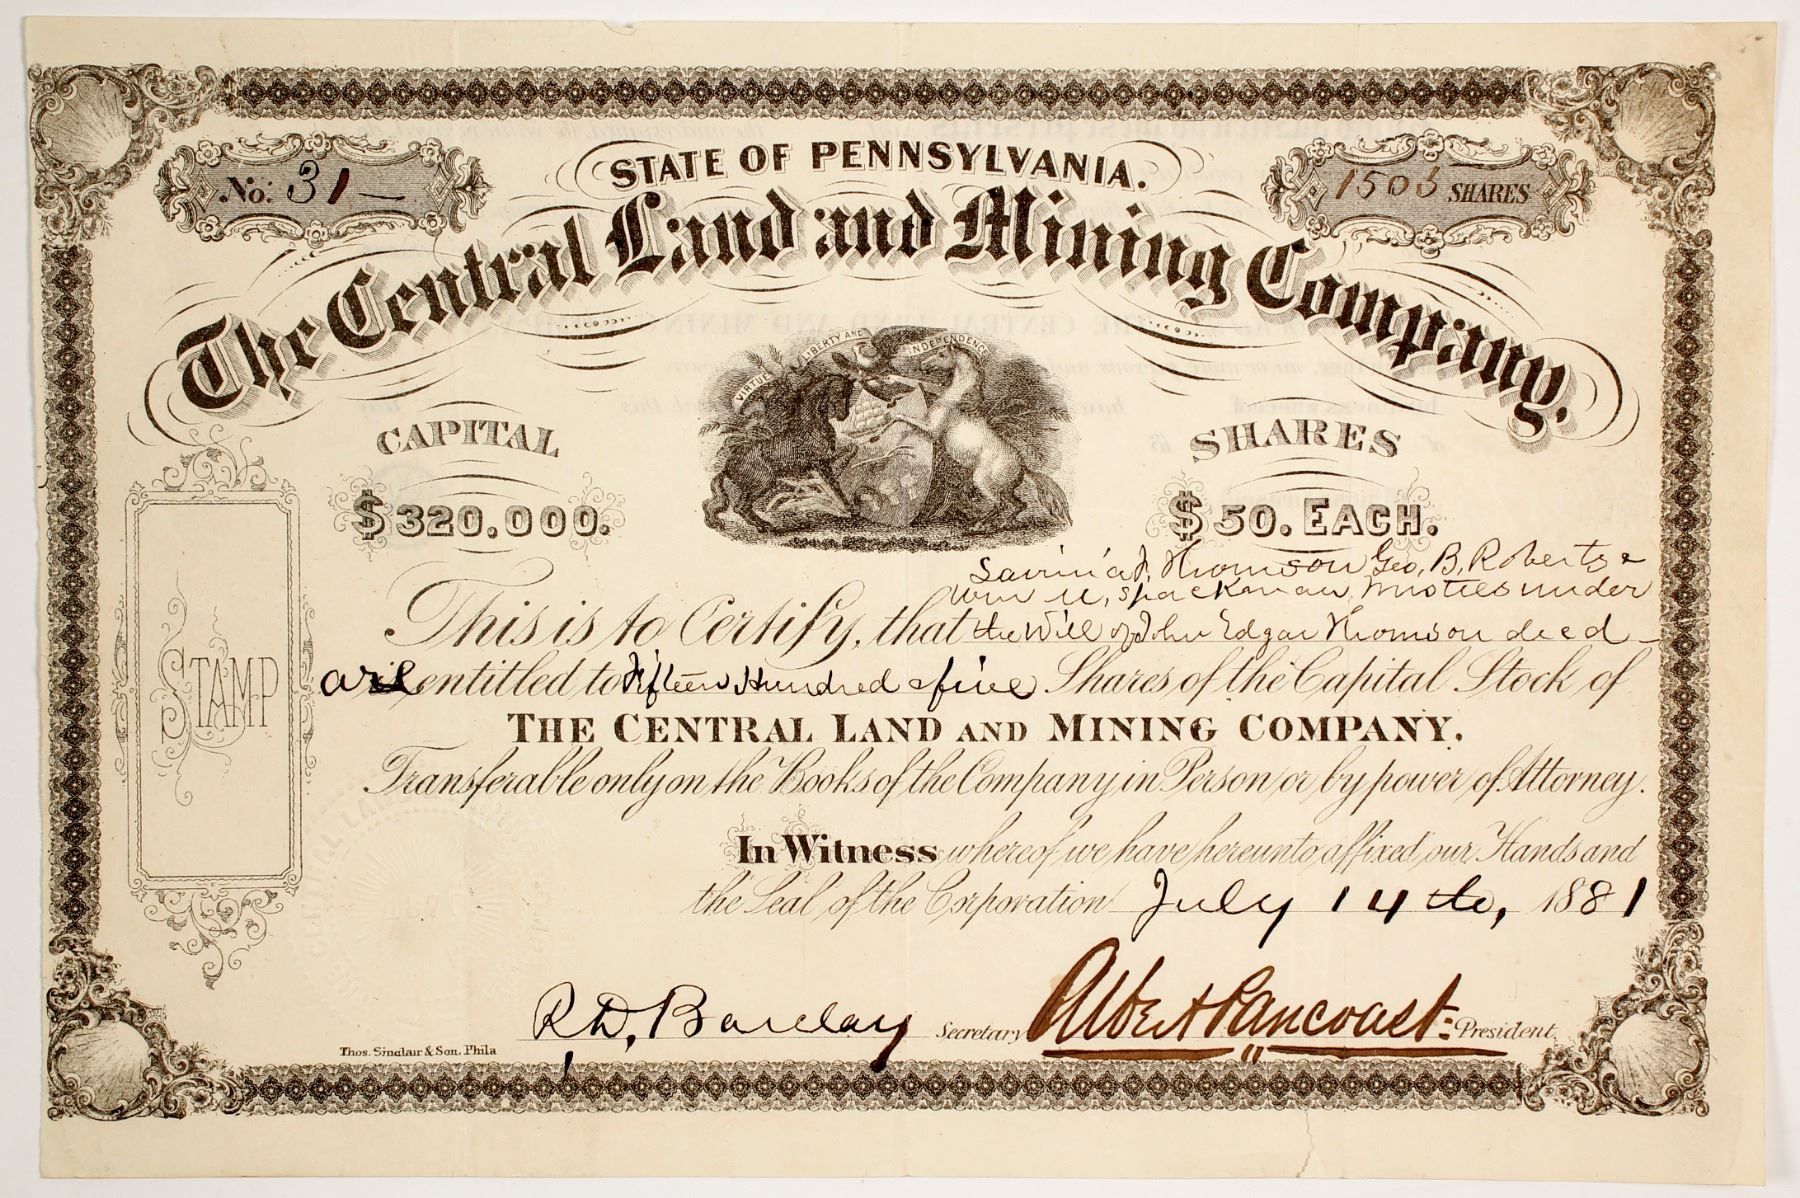 No. 31
STATE OF PENNSYLVANIA.
1505 SHARES
The Central Land and Mining Company.
VIRTUE LIBERTY AND INDEPENDENCE
CAPITAL
$320.000.
SHARES
$50. EACH.
STAMP
Lavinia F. Thomson Geo. B. Roberts &
Wm H. Spackman Trustees under
This is to Certify, that the Will of John Edgar Thomson decd
are entitled to Fifteen Hundred & five Shares of the Capital Stock of
THE CENTRAL LAND AND MINING COMPANY.
Transferable only on the Books of the Company in Person or by power of Attorney.
In Witness whereof we have hereunto affixed our Hands and
the Seal of the Corporation July 14th, 1881
R. D. Barclay Secretary Albert Pancoast President
Thos. Sinclair & Son, Phila